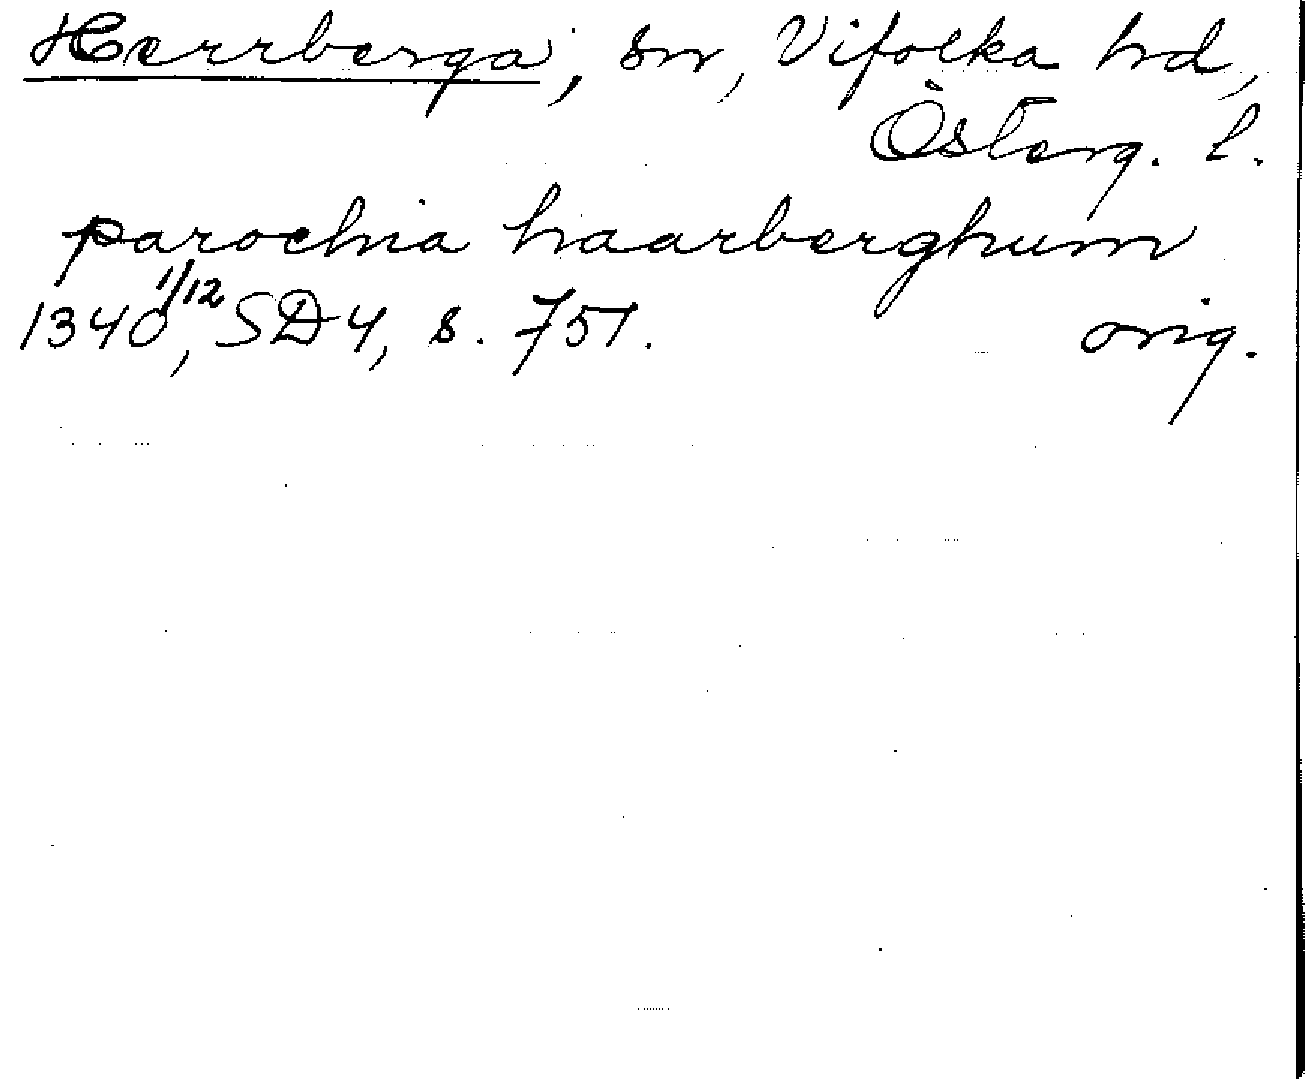 Herrberga, sn, Vifolka hd,
Österg. l.
parochia haarberghum
1340 1/12, SD 4, s. 751. orig.